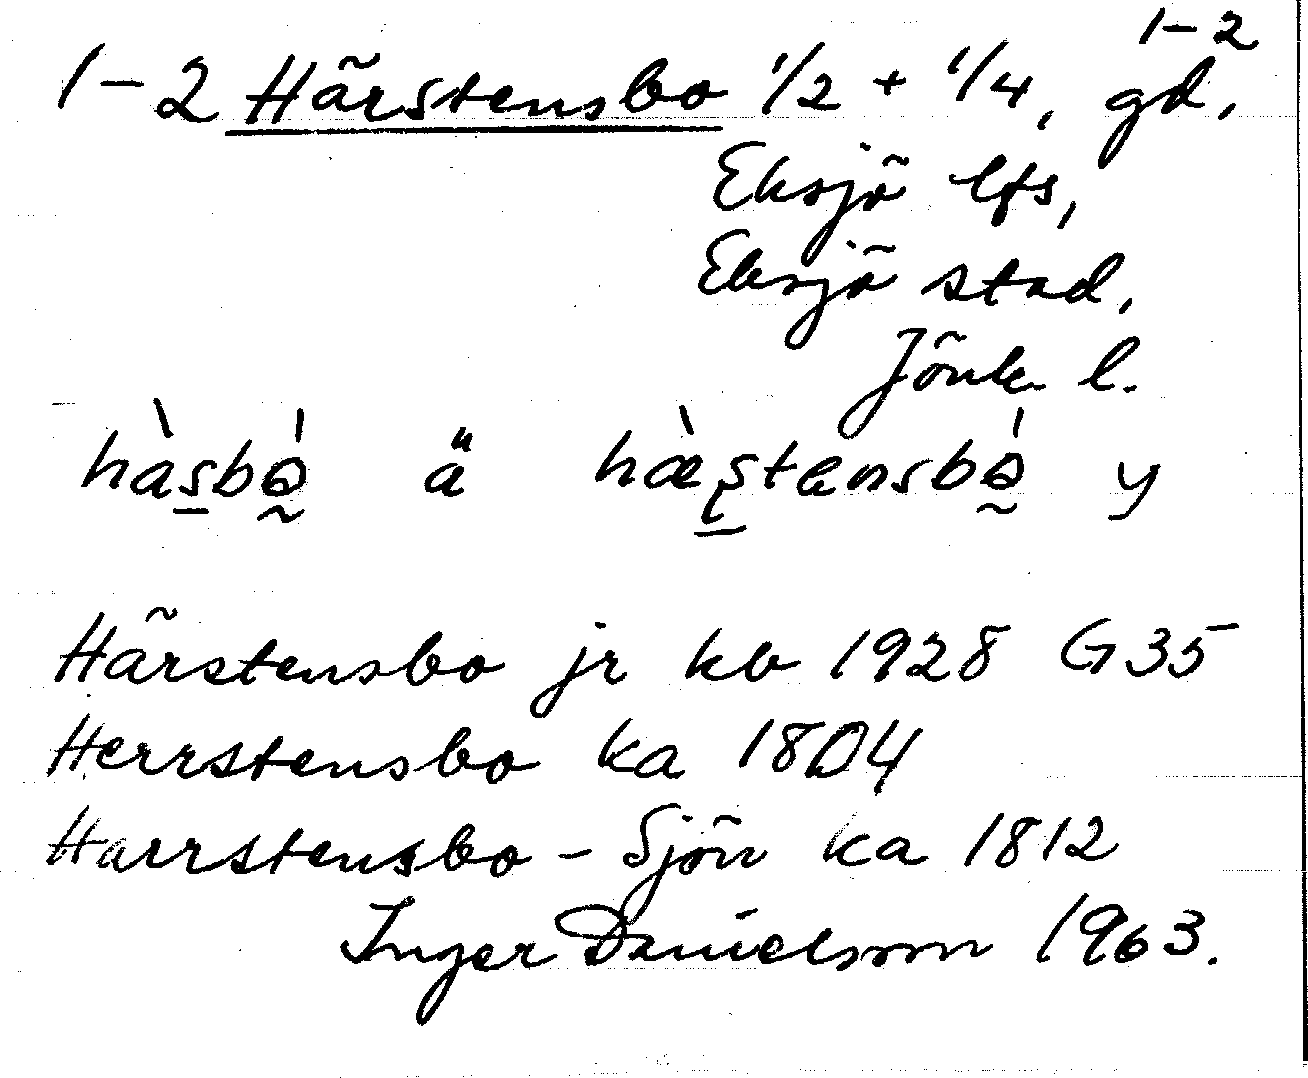 1-2 Härstensbo 1/2 + 1/4, gd, 1-2
Eksjö lfs,
Eksjö stad,
Jönk. l.
hàsbò ä hæ̀stensbò y
Härstensbo jr kb 1928 G35
Herrstensbo ka 1804
Harrstensbo-Sjön ka 1812
Inger Danielsson 1963.